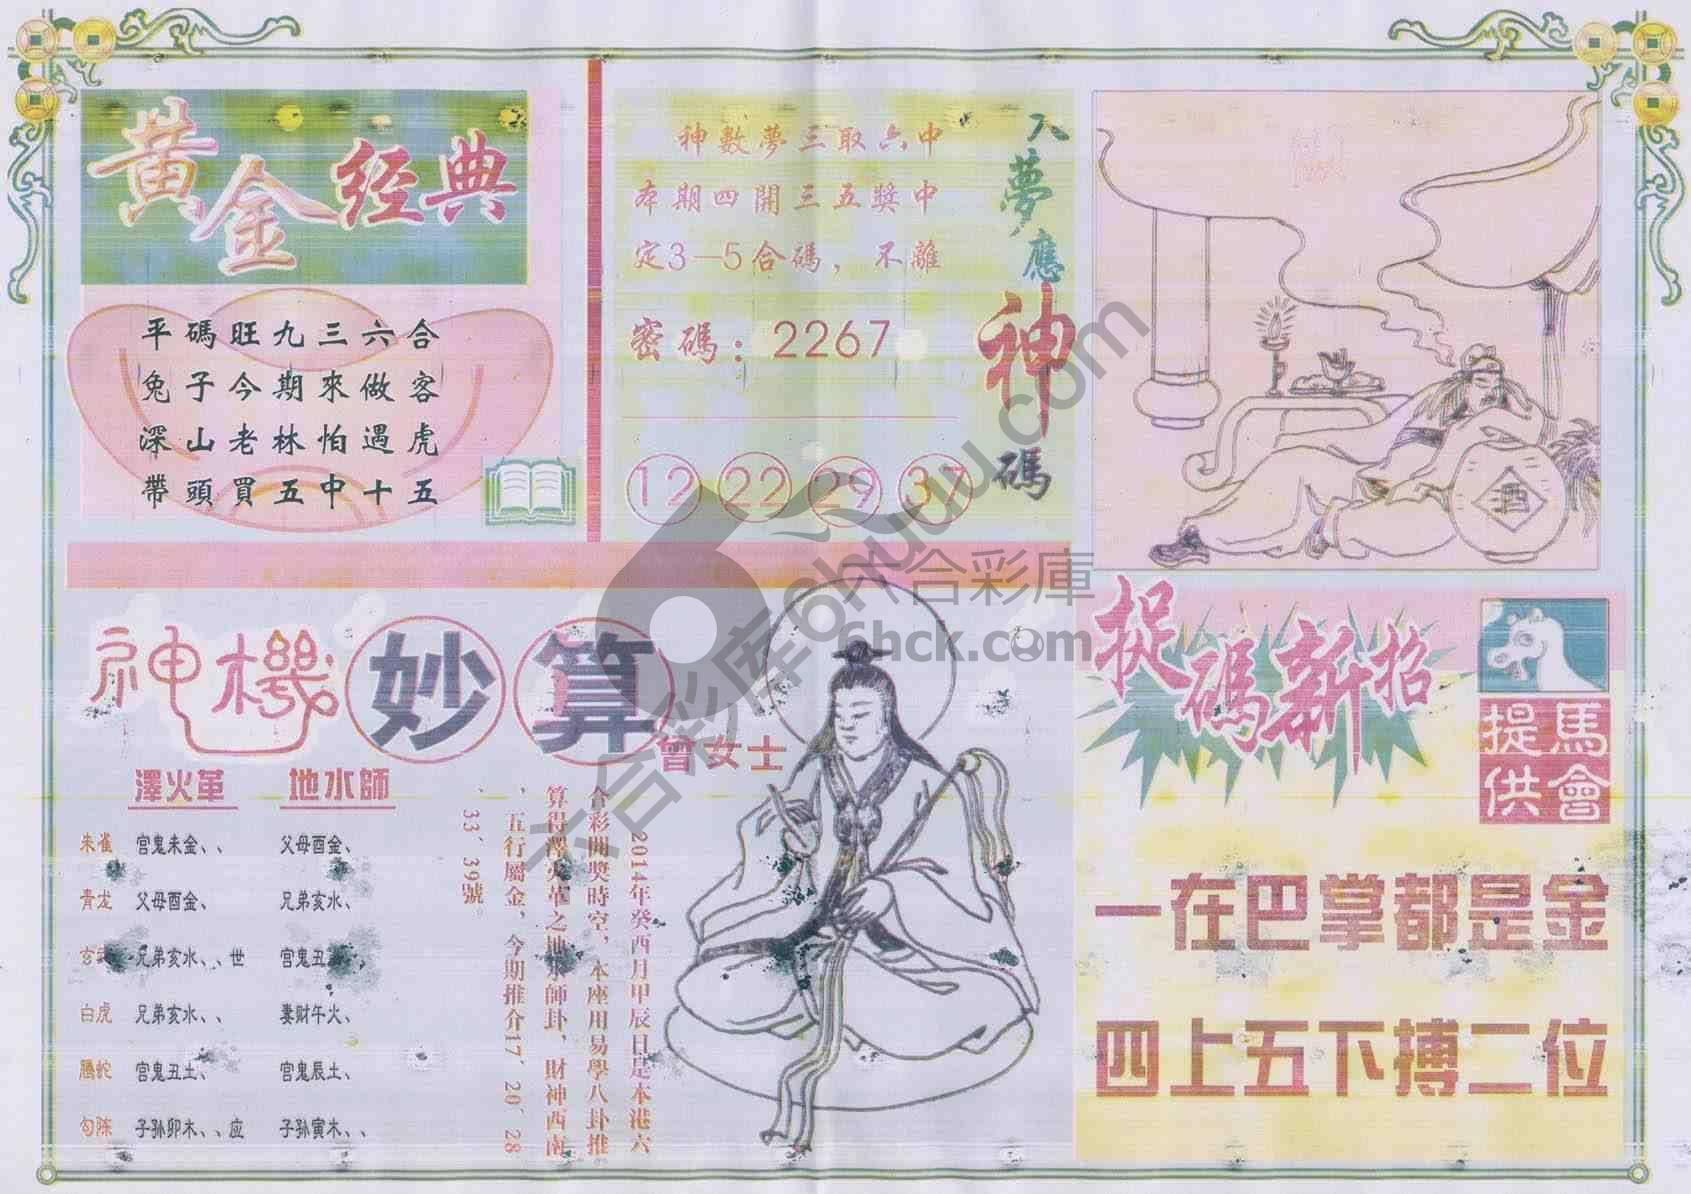 黄金经典
平碼旺九三六合
兔子今期來做客
深山老林怕遇虎
帶頭買五中十五
入夢應神碼
神數夢三取六中
本期四開三五獎中
定3—5合碼，不離
密碼：2267
12 22 29 37
酒
神機妙算
曾女士
澤火革 地水師
朱雀 宫鬼未金、、 父母酉金、
青龙 父母酉金、 兄弟亥水、
兄弟亥水、、世 宫鬼丑
白虎 兄弟亥水、、 妻财午火、
螣蛇 宫鬼丑土、 宫鬼辰土、
勾陈 子孙卯木、、应 子孙寅木、、
2014年癸酉月甲辰日是本港六
合彩開獎時空，本座用易學八卦推
算得澤火革之地水師卦，財神西南
，五行屬金，今期推介17、20、28
、33、39號。
捉碼新招
馬會提供
一在巴掌都是金
四上五下搏二位
六合彩庫
6hck.com
六合彩库okhuuu.com